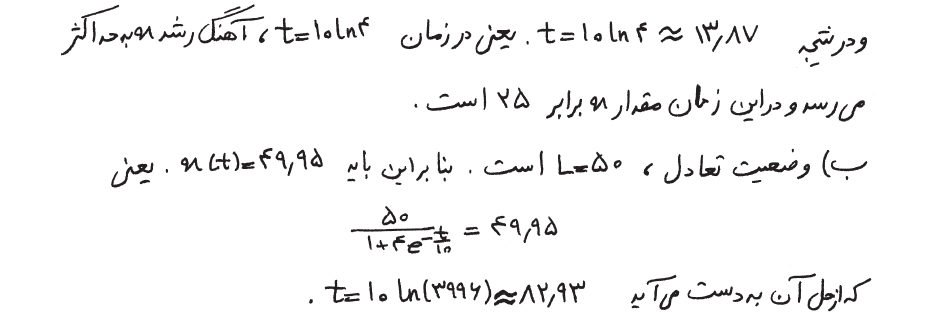 و در نتیجه t=۱۰ln۴ ≈ ۱۳٫۸۷. یعنی در زمان t=۱۰ln۴، آهنگ رشد x به حداکثر
می رسد و در این زمان مقدار x برابر ۲۵ است.
ب) وضعیت تعادل، L=۵۰ است. بنابراین باید x(t)=۴۹٫۹۵. یعنی
۵۰/(۱+۴e^(-t/۱۰)) = ۴۹٫۹۵
که از حل آن به دست می آید t=۱۰ln(۳۹۹۶)≈۸۲٫۹۳.